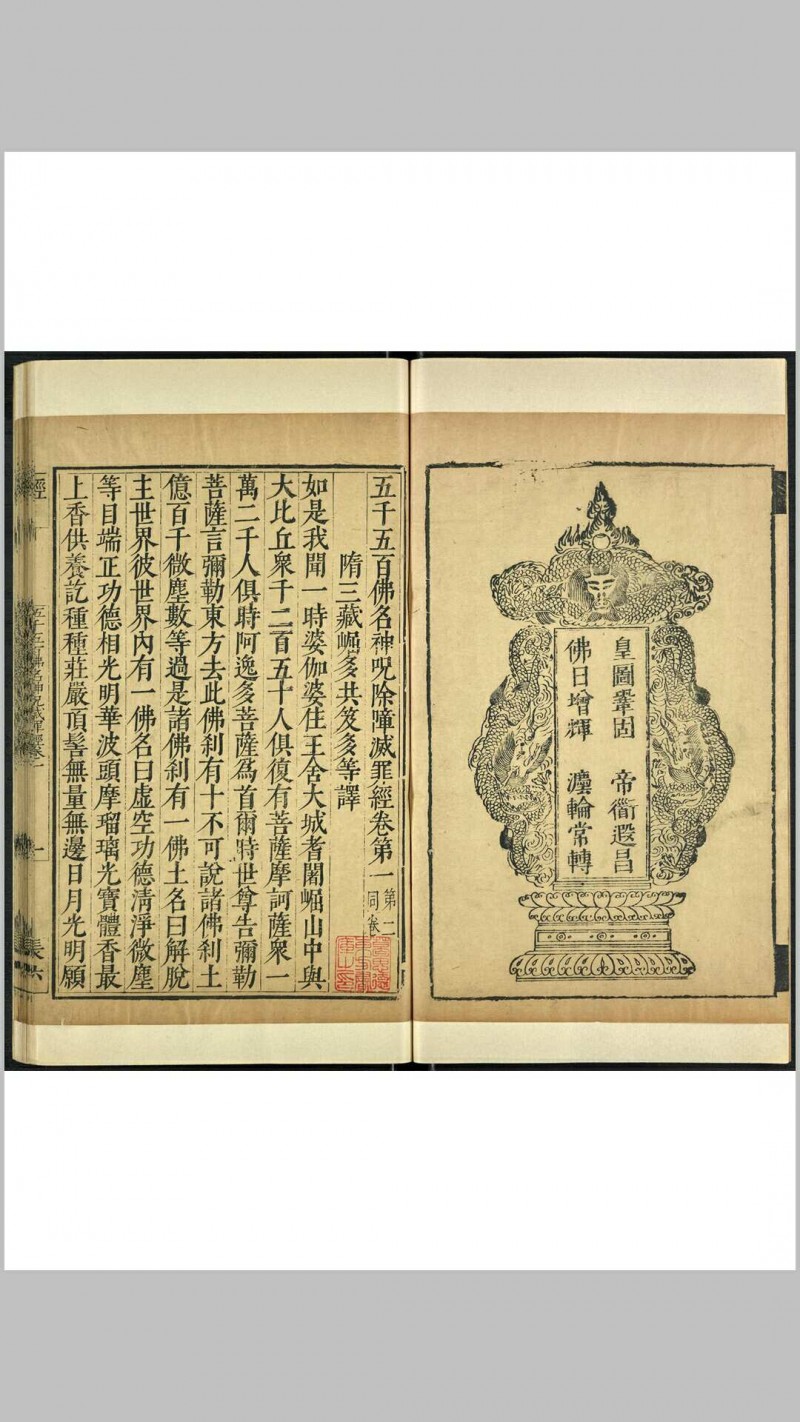 皇圖鞏固　帝衜遐昌
佛日增輝　灋輪常轉
五千五百佛名神呪除障滅罪經卷第一
第二
同卷
隋三藏崛多共笈多等譯
如是我聞一時婆伽婆住王舍大城耆闍崛山中與
大比丘衆千二百五十人俱復有菩薩摩訶薩衆一
萬二千人俱時阿逸多菩薩爲首爾時世尊告彌勒
菩薩言彌勒東方去此佛刹有十不可說諸佛刹土
億百千微塵數等過是諸佛刹有一佛土名曰解脫
主世界彼世界內有一佛名曰虛空功德淸淨微塵
等目端正功德相光明華波頭摩瑠璃光寶體香最
上香供養訖種種莊嚴頂髻無量無邊日月光明願
經